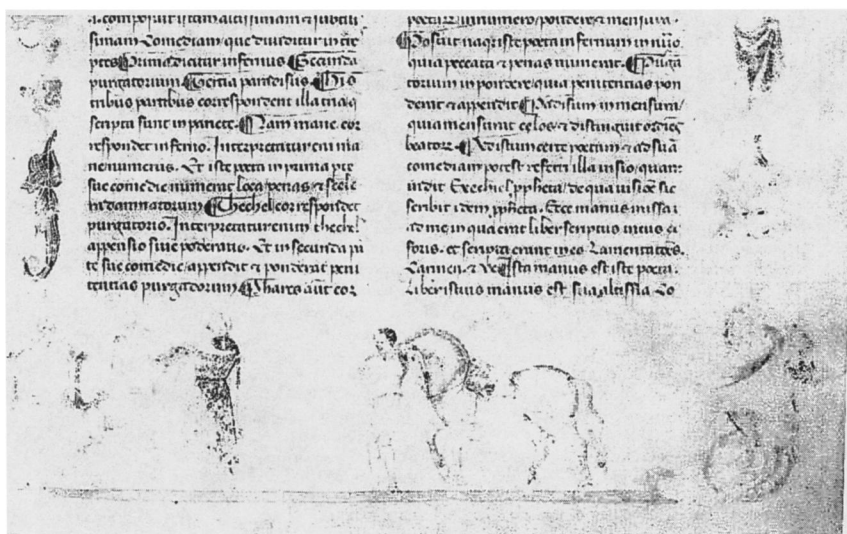 composuit istam altissimam & subtili
simam Comediam, que diuiditur in tres
ptes. Prima dicitur infernus. Secunda
purgatorium. Tertia paradisus. His
tribus partibus correspondent illa tria, q
scripta sunt in pariete. Nam mane cor
respondet inferno. Interpretatur enim ma
ne numerus. Et iste poeta in prima pte
sue comedie numerat loca, penas, & scele
ra damnatorum. Thechel correspondet
purgatorio. Interpretatur enim thechel
appensio siue ponderatio. Et in secunda p
te sue comedie, appendit & ponderat peni
tentias purgadorum. Phares aut cor
numero, pondere, & mensura.
Posuit naq iste poeta infernum in nuo.
quia peccata & penas numerat. Purga
torium in pondere, quia penitentias pon
derat & appendit. Padisum in mensura,
quia mensurat celos, & distinguit ordines
beator. Ad istum certe poetam & ad suam
comediam potest referri illa uisio, quam
uidit Ezechiel ppheta, de qua uisioe sic
scribit idem ppheta. Ecce manus missa
ad me in qua erat liber scriptus intus &
foris. et scripti erant in eo Lamentatões.
Carmen. & Ve. Ista manus est iste poeta.
Liber istius manus est sua altissia Co